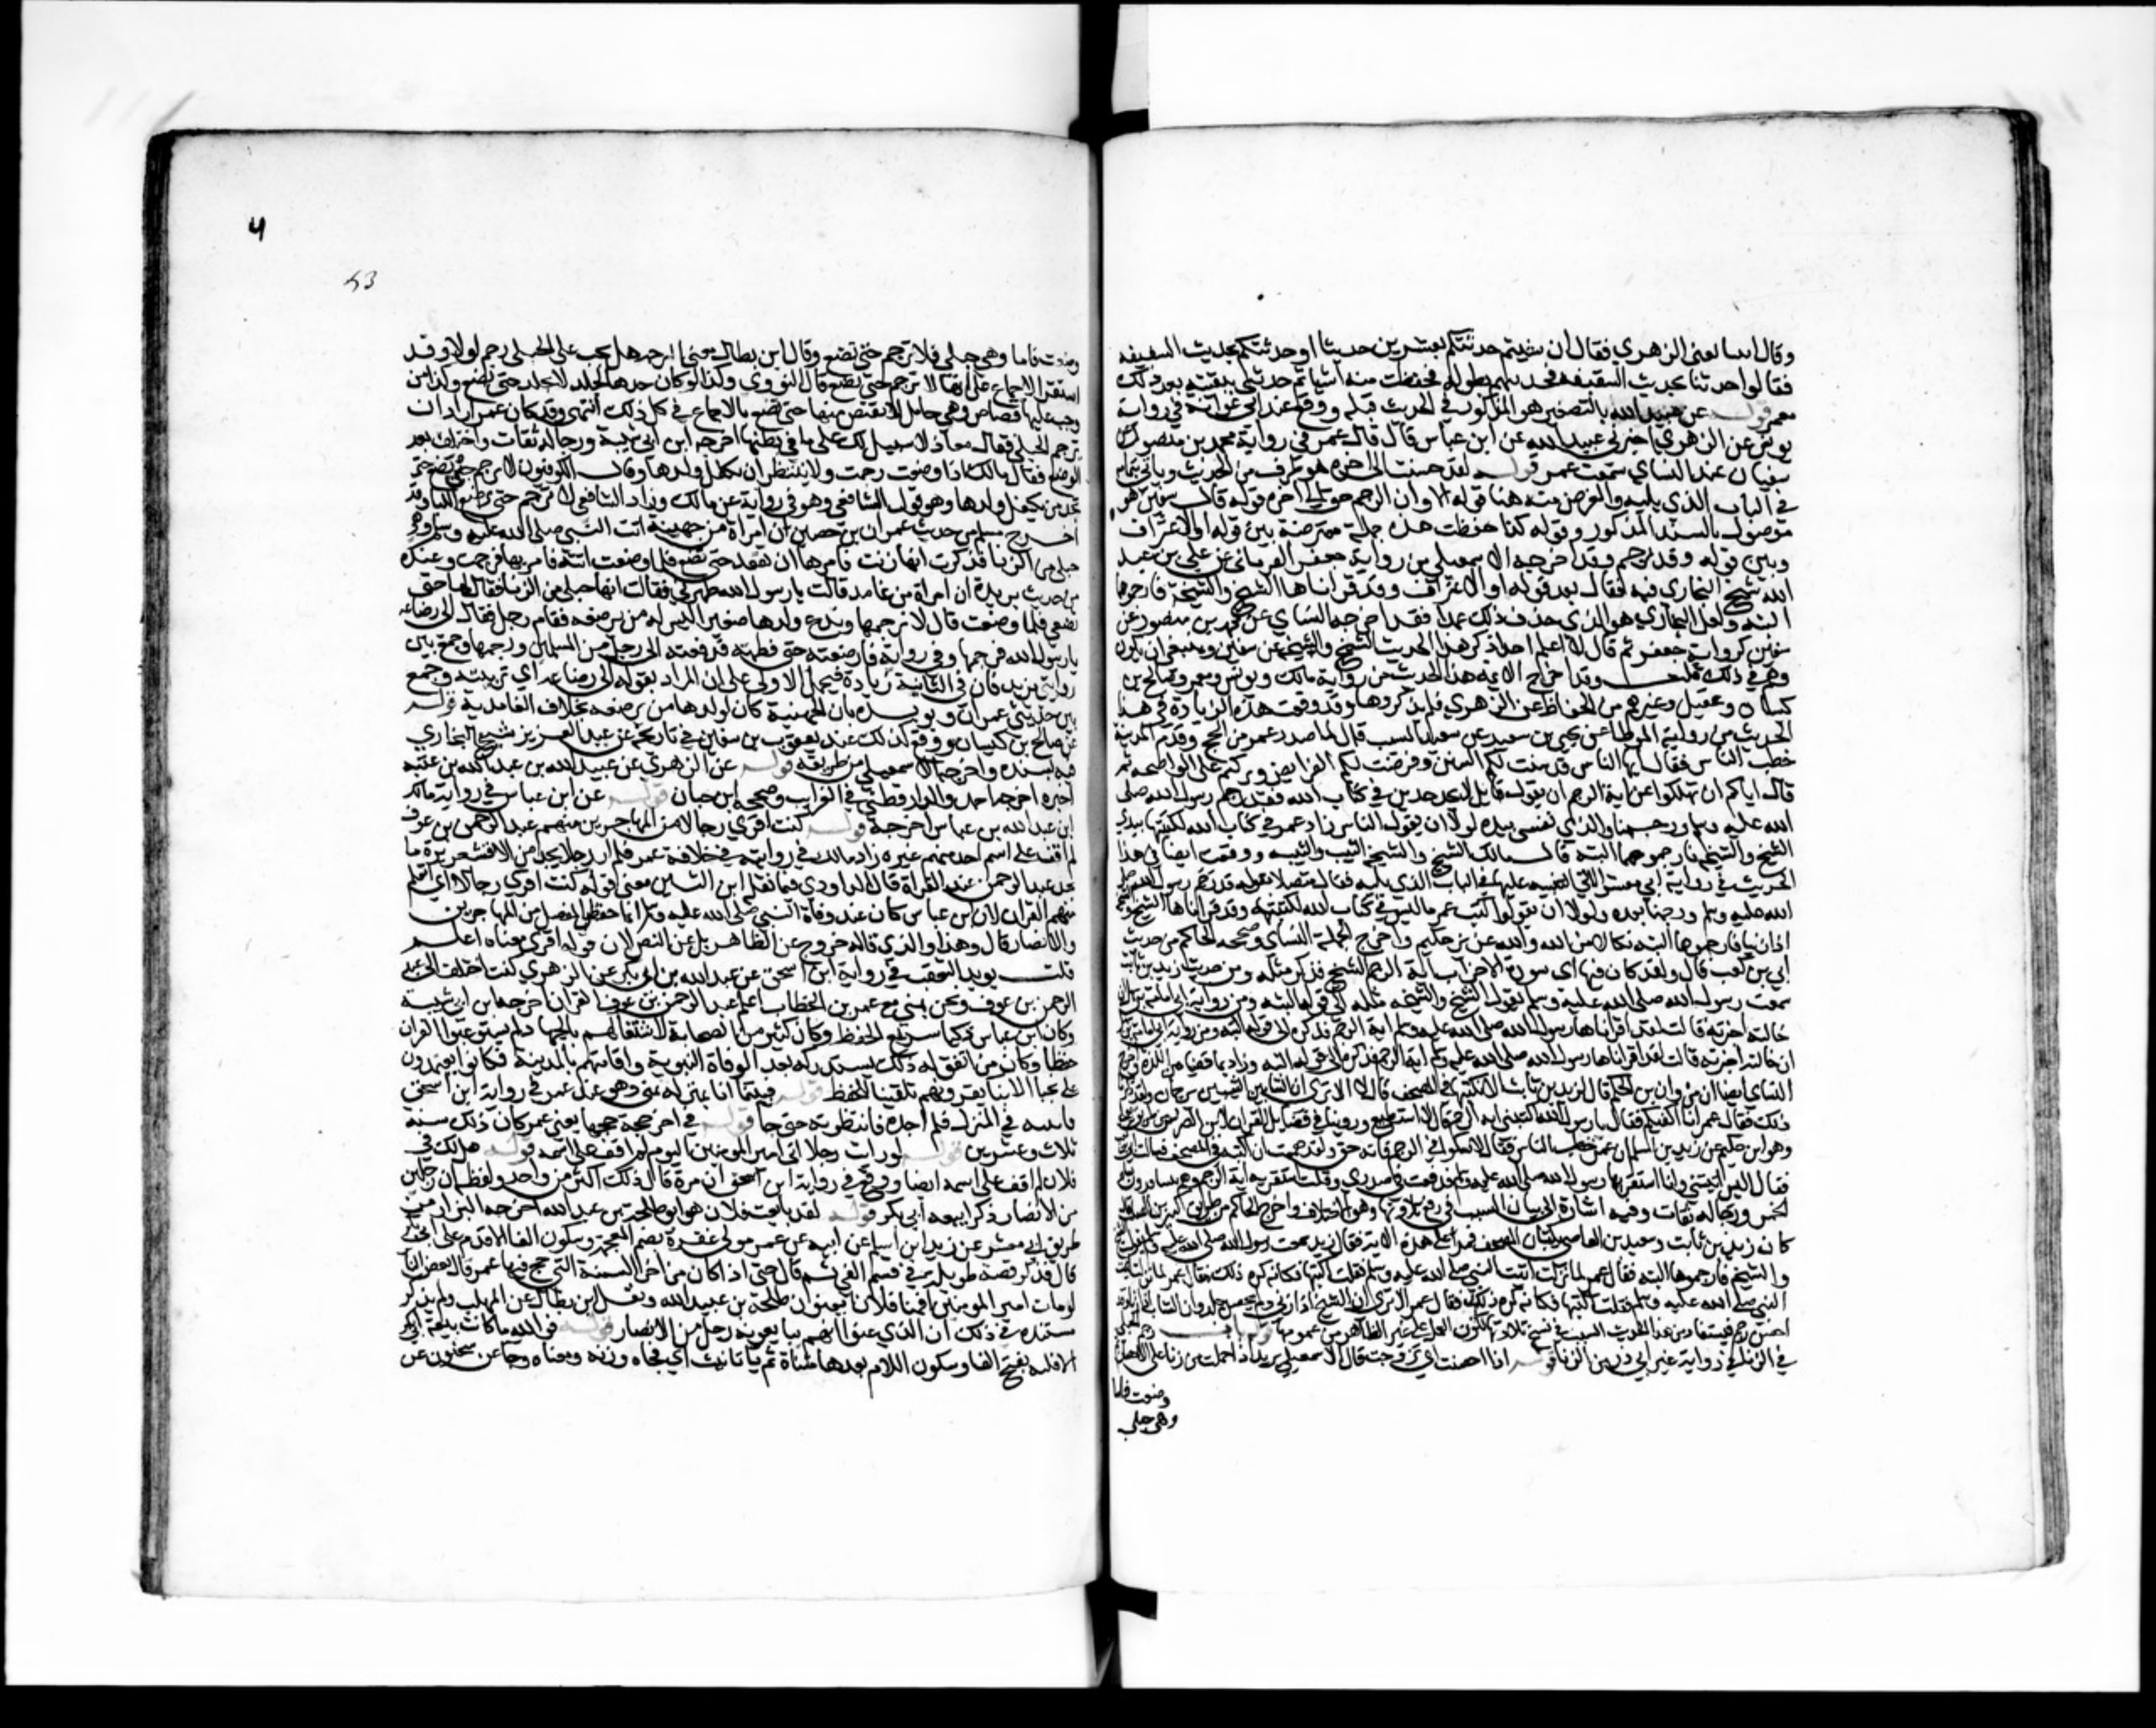 وقال اتينا يعني الزهري فقال ان شيتم حدثتكم بعشرين حديثا اوحدثتكم بحديث السقيفه
فقالوا حدثنا بحديث السقيفه فحدثهم بطوله فحفظت منه اشيا ثم حدثني ببقيته بعد ذلك
معمر قوله عن عبيد الله بالتصغير هو المذكور في الحديث قبله ووقع عند ابي عوانة في رواية
يونس عن الزهري اخبرني عبيد الله عن ابن عباس قال قال عمر في رواية محمد بن منصور عن
سفيان عند النساي سمعت عمر قوله لقد خشيت الى اخره هو طرف من الحديث وياتي بتمامه
في الباب الذي يليه والغرض منه هنا قوله الا وان الرجم حق الى اخره قوله قال سفين هو
موصول بالسند المذكور وقوله كذا حفظت هذه جملة معترضة بين قوله او الاعتراف
وبين قوله وقد رجم وقد اخرجه الاسمعيلي من رواية جعفر الفريابي عن علي بن عبد
الله شيخ البخاري فيه فقال بعد قوله او الاعتراف وقد قراناها الشيخ والشيخة فارجموهما
البتة ولعل البخاري هو الذي حذف ذلك عمدا فقد اخرجه النساي عن محمد بن منصور عن
سفين كرواية جعفر ثم قال لا اعلم احدا ذكر هذا الحديث الشيخ والشيخة عن سفين وينبغي ان يكون
وهم في ذلك قلت وقد اخرج الايمه هذا الحديث من رواية مالك ويونس ومعمر وصالح بن
كيسان وعقيل وغيرهم من الحفاظ عن الزهري فلم يذكروها وقد وقعت هذه الزيادة في هذا
الحديث من رواية الموطا عن يحيى بن سعيد عن سعيد بن المسيب قال لما صدر عمر من الحج وقدم المدينة
خطب الناس فقال ايها الناس قد سنت لكم السنن وفرضت لكم الفرايض وتركتم على الواضحه ثم
قال اياكم ان تهلكوا عن اية الرجم ان يقول قايل لا نجد حدين في كتاب الله فقد رجم رسول الله صلى
الله عليه وسلم ورجمنا والذي نفسي بيده لولا ان يقول الناس زاد عمر في كتاب الله لكتبتها بيدي
الشيخ والشيخه فارجموهما البته قال مالك الشيخ والشيخة الثيب والثيبه ووقعت ايضا في هذا
الحديث في رواية ابي معشر الاتي التنبيه عليها في الباب الذي يليه فقال متصلا بقوله قد رجم رسول الله صلى
الله عليه وسلم ورجمنا بعده ولولا ان يقولوا كتب عمر ما ليس في كتاب الله لكتبته وقد قراناها الشيخ والشيخة
اذا زنيا فارجموهما البته نكالا من الله والله عزيز حكيم واخرج الجملة النساي وصححه الحاكم من حديث
ابي بن كعب قال ولقد كان فيها اي سورة الاحزاب اية الرجم الشيخ فذكر مثله ومن حديث زيد بن ثابت
سمعت رسول الله صلى الله عليه وسلم يقول الشيخ والشيخه مثله الى قوله البته ومن رواية ابي امامة بن سهل ان
خالته اخبرته قالت لقد اقراناها رسول الله صلى الله عليه وسلم اية الرجم فذكره الى قوله البته
ان خالته اخبرته قالت لقد اقراناها رسول الله صلى الله عليه وسلم اية الرجم فذكره الى قوله البته وزاد بما قضيا من اللذة واخرج
النساي ايضا ان مروان بن الحكم قال لزيد بن ثابت الا تكتبها في المصحف قال لا الا ترى ان الشابين الثيبين يرجمان ولقد ذكرنا
ذلك فقال عمر انا اكفيكم فقال يا رسول الله اكتبني اية الرجم قال لا استطيع وروينا في فضايل القران لابن الضريس من طريق يعلى
وهو ابن حكيم عن زيد بن اسلم ان عمر خطب الناس فقال لا تشكوا في الرجم فانه حق ولقد هممت ان اكتبه في المصحف فسالت ابي
فقال اليس اتيتني وانا استقريها رسول الله صلى الله عليه وسلم فدفعت في صدري وقلت استقريه اية الرجم وهم يتسافدون تسافد
الحمر ورجاله ثقات وفيه اشارة الى بيان السبب في رفع تلاوتها وهو الاختلاف واخرج الحاكم من طريق كثير بن الصلت قال
كان زيد بن ثابت وسعيد بن العاصي يكتبان المصحف فمرا على هذه الاية فقال زيد سمعت رسول الله صلى الله عليه وسلم يقول الشيخ
والشيخه فارجموهما البته فقال عمر لما نزلت اتيت النبي صلى الله عليه وسلم فقلت اكتبها فكانه كره ذلك فقال عمر
النبي صلى الله عليه وسلم فقلت اكتبها فكانه كره ذلك فقال عمر الا ترى ان الشيخ اذا زنى ولم يحصن جلد وان الشاب اذا زنا وقد
احصن رجم فيستفاد من هذا الحديث السبب في نسخ تلاوتها لكون العمل على غير الظاهر من عمومها قوله باب رجم الحبلى
في الزنا في رواية غير ابي ذر من الزنا قوله اذا احصنت اي تزوجت قال الاسمعيلي يريد اذا حملت من زنا على الاحصان ثم
وضعت فاما
وهي حبلى
4
43
وضعت فاما وهي حبلى فلا ترجم حتى تضع وقال ابن بطال معنى الترجمه هل يجب على الحبلى رجم اولا وقد
استقر الاجماع على انها لا ترجم حتى تضع قال النووي وكذا لو كان حدها الجلد لا تجلد حتى تضع وكذا من
وجب عليها قصاص وهي حامل لا يقتص منها حتى تضع بالاجماع في كل ذلك انتهى وقد كان عمر اراد ان
يرجم الحبلى فقال معاذ لا سبيل لك على ما في بطنها اخرجه ابن ابي شيبة ورجاله ثقات واختلف بعد
الوضع فقال مالك اذا وضعت رجمت ولا ينتظر ان يكفل ولدها وقال الكوفيون لا ترجم حين تضع حتى
تجد من يكفل ولدها وهو قول الشافعي وهو في رواية عن مالك وزاد الشافعي لا ترجم حتى ترضع اللبا وقد
اخرج مسلم من حديث عمران بن حصين ان امراة من جهينة اتت النبي صلى الله عليه وسلم وهي
حبلى من الزنا فذكرت انها زنت فامرها ان تقعد حتى تضع فلما وضعت اتته فامر بها فرجمت وعنده
من حديث بريدة ان امراة من غامد قالت يا رسول الله طهرني فقالت انها حبلى من الزنا فقال لها حتى
تضعي فلما وضعت قال لا نرجمها وندع ولدها صغيرا ليس له من يرضعه فقام رجل فقال الى رضاعه
يا رسول الله فرجمها وفي رواية فارضعته حتى فطمته ودفعته الى رجل من المسلمين ورجمها وجمع بين
روايتي بريدة فان في الثانية زيادة فيحمل الاولى على ان المراد بقوله الى رضاعه اي تربيته وجمع
بين حديثي عمران وبريدة بان الجهنية كان لولدها من يرضعه بخلاف الغامدية قوله
عن صالح بن كيسان ووقع كذلك عند يعقوب بن سفين في تاريخه عن عبد العزيز شيخ البخاري
فيه بسنده واخرجه الاسمعيلي من طريقه قوله عن الزهري عن عبيد الله بن عبد الله بن عتبة
اخبره اخرجه احمد والدارقطني في الغرايب وصححه ابن حبان قوله عن ابن عباس في رواية مالك
ان عبد الله بن عباس اخرجه قوله كنت اقري رجالا من المهاجرين منهم عبد الرحمن بن عوف
لم اقف على اسم احد منهم غيره زاد مالك في روايته في خلافة عمر فلم ار رجلا يجد من الاقشعريرة ما
يجد عبد الرحمن عند القراة قال الداودي فيما نقله ابن التين معنى قوله كنت اقري رجالا اي اتعلم
منهم القران لان ابن عباس كان عند وفاة النبي صلى الله عليه وسلم انما حفظ المفصل من المهاجرين
والانصار قال وهذا الذي قاله خروج عن الظاهر بل عن النص لان قوله اقري معناه اعلم
قلت يويد التعقب في رواية ابن اسحق عن عبد الله بن ابي بكر عن الزهري كنت اختلف الى عبد
الرحمن بن عوف ونحن بمنى مع عمر بن الخطاب اعلم عبد الرحمن بن عوف القران اخرجه ابن ابي شيبة
وكان ابن عباس ذكيا سريع الحفظ وكان كثير من الصحابة لاشتغالهم بالجهاد لم يستوعبوا القران
حفظا وكان من اتفق له ذلك يستدركه بعد الوفاة النبوية واقامتهم بالمدينة فكانوا يعتمدون
على نجبا الابنا يقرونهم تلقينا للحفظ قوله فبينما انا بمنزله بمنى وهو عند عمر في رواية ابن اسحق
فاتيته في المنزل فلم اجده فانتظرته حتى جا قوله في اخر حجه حجها يعني عمر كان ذلك سنة
ثلاث وعشرين قوله لو رايت رجلا اتى امير المومنين اليوم لم اقف على اسمه قوله هل لك في
فلان لم اقف على اسمه ايضا ووقع في رواية ابن اسحق ان مرة قال ذلك اكثر من واحد ولفظه ان رجلين
من الانصار ذكرا بيعه ابي بكر قوله لقد بايعت فلان هو ابو طلحة بن عبيد الله اخرجه البزار من
طريق ابي معشر عن زيد ابن اسلم عن ابيه عن عمر مولى غفرة بضم المعجمة وسكون الفا لاقدم على الحفظ
قال فذكر قصة طويلة في قسم الفي ثم قال حتى اذا كان من اخر السنة التي حج فيها عمر قال بعض الناس
لو مات امير المومنين اقمنا فلانا يعنون طلحة بن عبيد الله ونقل ابن بطال عن المهلب ولم يذكر
مستنده في ذلك ان الذي عنوا انهم يبايعونه رجل من الانصار قوله فوالله ما كانت بيعة ابي بكر
الا فلته بفتح الفا وسكون اللام بعدها مثناة ثم تا تانيث اي فجاه وزنه ومعناه وجا عن سحنون عن